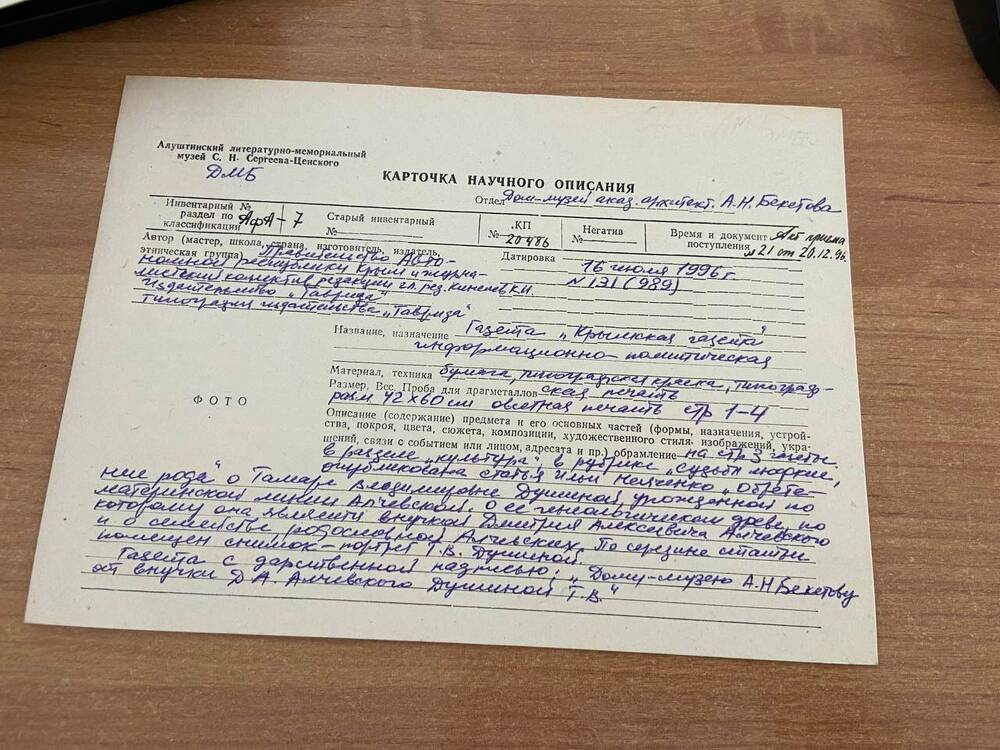 Алуштинский литературно-мемориальный
музей С. Н. Сергеева-Ценского
ДМБ
КАРТОЧКА НАУЧНОГО ОПИСАНИЯ
Отдел Дом-музей акад. архитект. А.Н. Бекетова
Инвентарный №
раздел по
классификации АфА-7
Старый инвентарный
№
КП
№ 20486
Негатив
№
Время и документ Акт приема
поступления №21 от 20.12.96.
Автор (мастер, школа, страна, изготовитель, издатель,
этническая группа) Правительство Авто-
номной республики Крым и журна-
листский коллектив редакции гл. ред.
издательство „Таврида"
типография издательства „Таврида"
Датировка 16 июля 1996 г.
№ 131 (989)
Название, назначение Газета „Крымская газета"
информационно-политическая
Материал, техника бумага, типографская краска, типограф-
Размер, Вес. Проба для драгметаллов ская печать
разм 42х60 см офсетная печать стр 1-4
Описание (содержание) предмета и его основных частей (формы, назначения, устрой-
ства, покроя, цвета, сюжета, композиции, художественного стиля изображений, укра-
шений, связи с событием или лицом, адресата и пр.) обрамление на стр 3 газеты
в разделе „культура", в рубрике „Судьбы людские,
опубликована статья Ильи „Обрете-
ФОТО
ние рода" о Тамаре Владимировне Душиной урожденной по
материнской линии Алчевской. О ее генеалогическом древе, по
которому она является внучкой Дмитрия Алексеевича Алчевского
и о семействе родословной Алчевских. По середине статьи
помещен снимок-портрет Т.В. Душиной.
Газета с дарственной надписью: „Дому-музею А.Н Бекетову
от внучки Д.А. Алчевского Душиной Т.В."